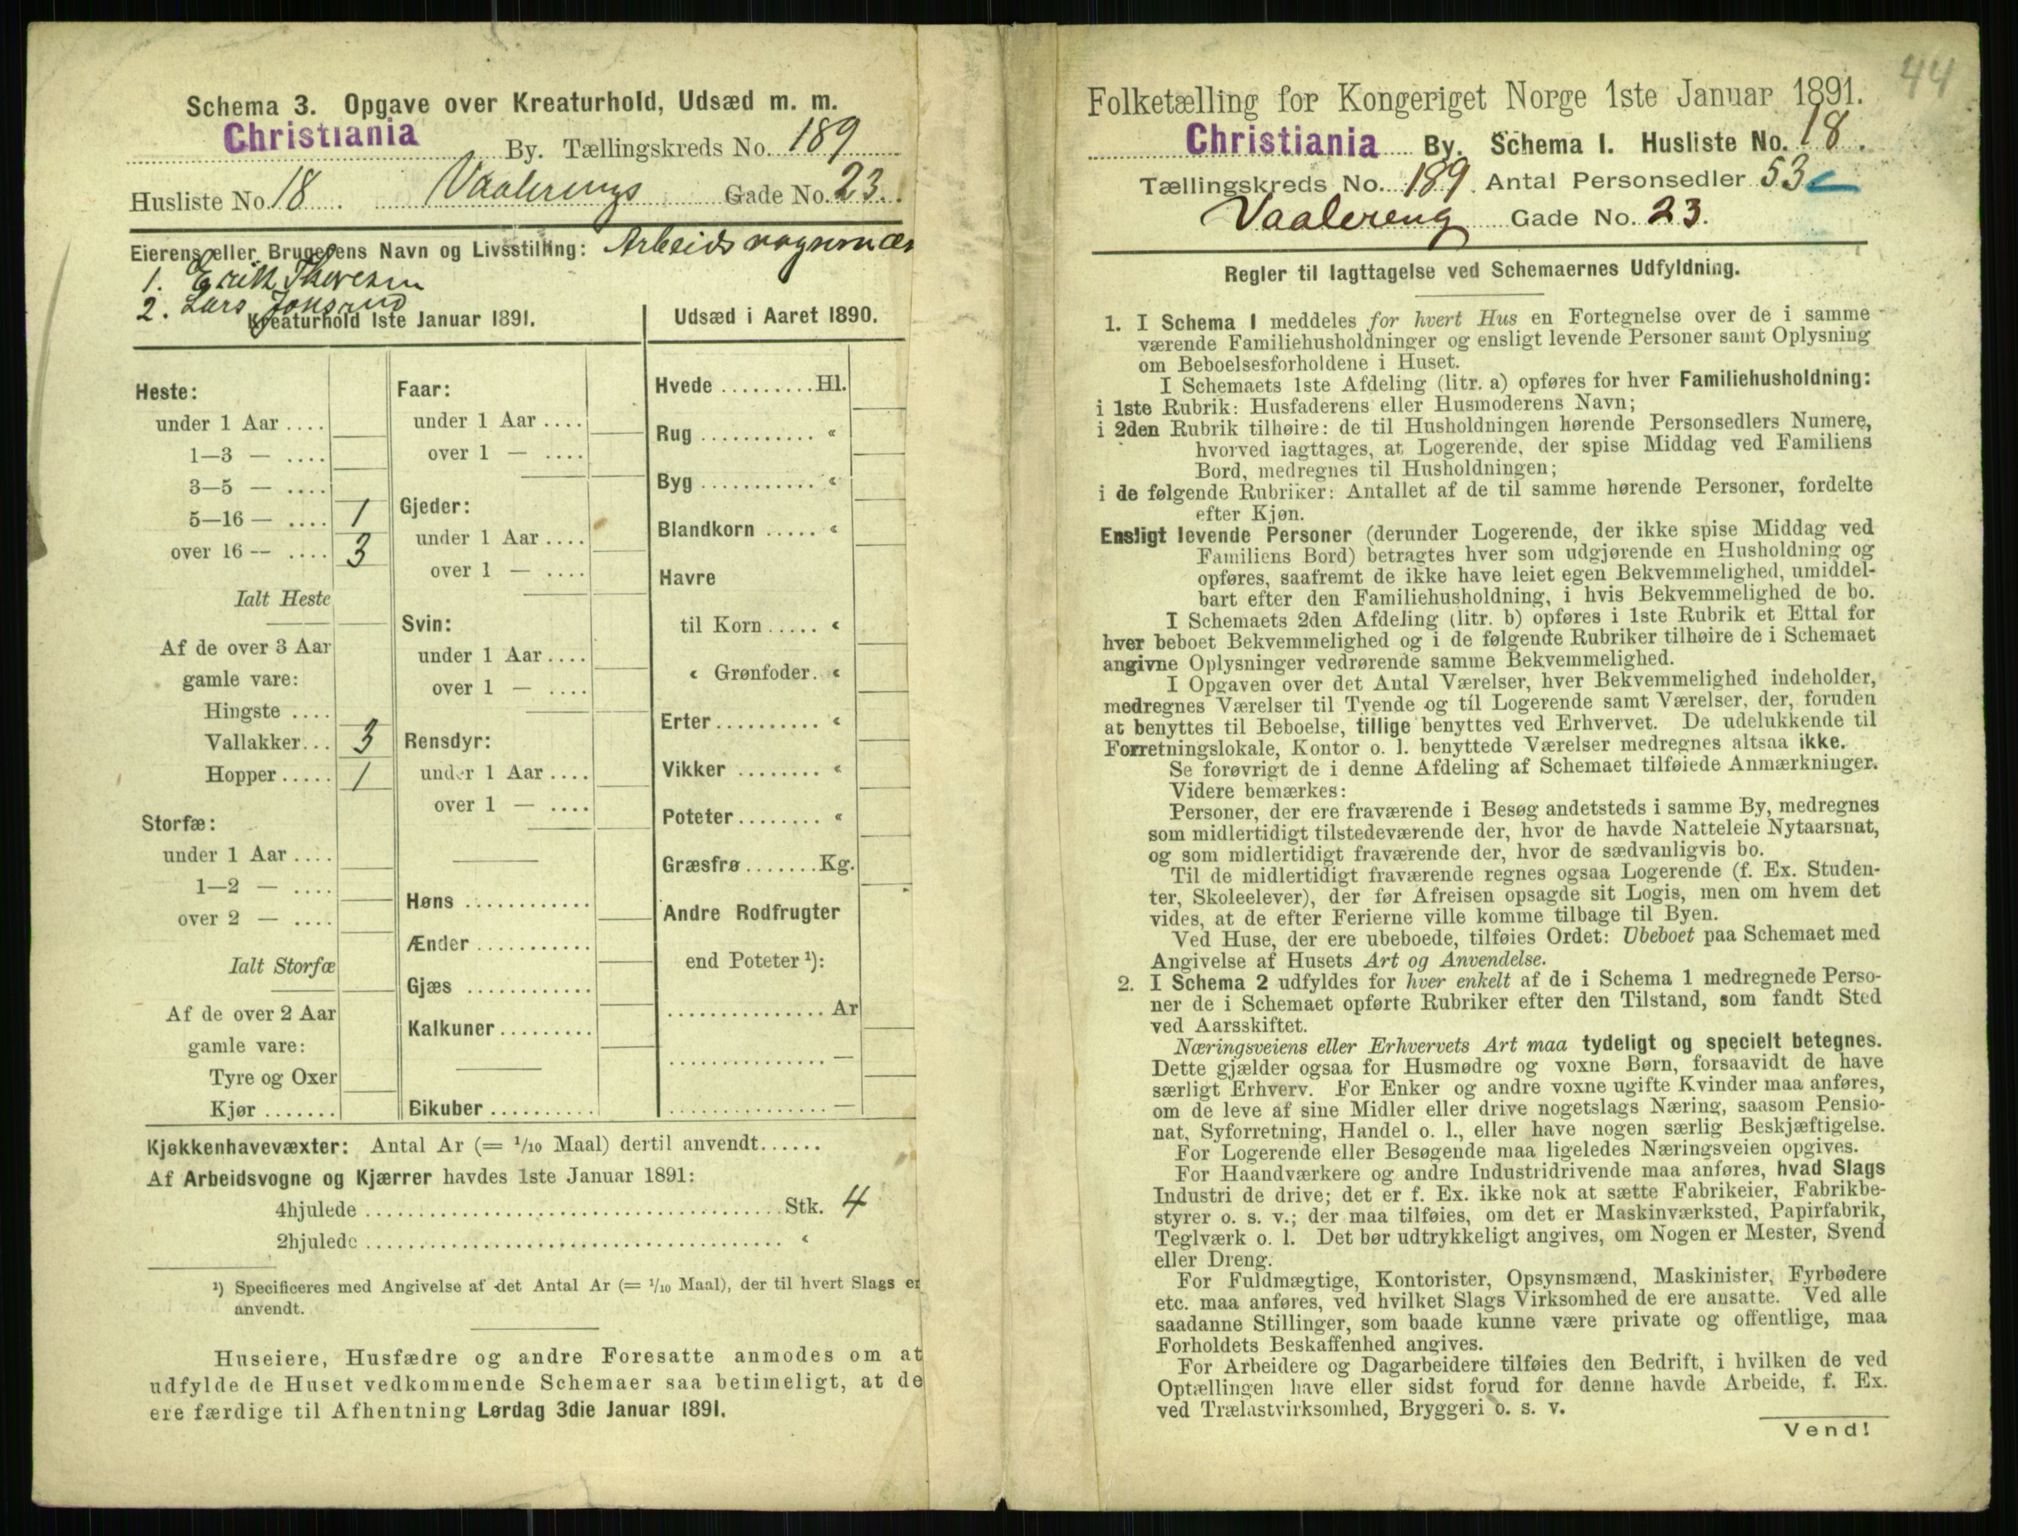 Schema 3. Opgave over Kreaturhold, Udsæd m. m.
Christiania By. Tællingskreds No. 189
Husliste No. 18. Vaalerengs Gade No. 23.
Eierens eller Brugerens Navn og Livsstilling: Arbeidsvognmæn
1. Erik Thoresen
2. Lars
Kreaturhold 1ste Januar 1891.
Udsæd i Aaret 1890.
Heste:
under 1 Aar ....
1—3 — ....
3—5 — ....
5—16 — .... 1
over 16 — .... 3
Ialt Heste
Af de over 3 Aar
gamle vare:
Hingste ....
Vallakker... 3
Hopper..... 1
Storfæ:
under 1 Aar ....
1—2 — ....
over 2 — ....
Ialt Storfæ
Af de over 2 Aar
gamle vare:
Tyre og Oxer
Kjør .......
Faar:
under 1 Aar ....
over 1 — ....
Gjeder:
under 1 Aar ....
over 1 — ....
Svin:
under 1 Aar ....
over 1 — ....
Rensdyr:
under 1 Aar ....
over 1 — ....
Høns ............
Ænder ...........
Gjæs ............
Kalkuner .........
Bikuber ..........
Hvede ......... Hl.
Rug ........... «
Byg ........... «
Blandkorn ..... «
Havre
til Korn ..... «
« Grønfoder. «
Erter .......... «
Vikker ........ «
Poteter ........ «
Græsfrø ....... Kg.
Andre Rodfrugter
end Poteter ¹):
............... Ar
............... —
............... —
Kjøkkenhavevæxter: Antal Ar (= 1/10 Maal) dertil anvendt......
Af Arbeidsvogne og Kjærrer havdes 1ste Januar 1891:
4hjulede ........................................ Stk. 4
2hjulede ........................................ «
¹) Specificeres med Angivelse af det Antal Ar (= 1/10 Maal), der til hvert Slags er
anvendt.
Huseiere, Husfædre og andre Foresatte anmodes om at
udfylde de Huset vedkommende Schemaer saa betimeligt, at de
ere færdige til Afhentning Lørdag 3die Januar 1891.
44
Folketælling for Kongeriget Norge 1ste Januar 1891.
Christiania By. Schema I. Husliste No. 18.
Tællingskreds No. 189. Antal Personsedler 53
Vaalereng Gade No. 23.
Regler til Iagttagelse ved Schemaernes Udfyldning.
1. I Schema I meddeles for hvert Hus en Fortegnelse over de i samme
værende Familiehusholdninger og ensligt levende Personer samt Oplysning
om Beboelsesforholdene i Huset.
I Schemaets 1ste Afdeling (litr. a) opføres for hver Familiehusholdning:
i 1ste Rubrik: Husfaderens eller Husmoderens Navn;
i 2den Rubrik tilhøire: de til Husholdningen hørende Personsedlers Numere,
hvorved iagttages, at Logerende, der spise Middag ved Familiens
Bord, medregnes til Husholdningen;
i de følgende Rubriker: Antallet af de til samme hørende Personer, fordelte
efter Kjøn.
Ensligt levende Personer (derunder Logerende, der ikke spise Middag ved
Familiens Bord) betragtes hver som udgjørende en Husholdning og
opføres, saafremt de ikke have leiet egen Bekvemmelighed, umiddel-
bart efter den Familiehusholdning, i hvis Bekvemmelighed de bo.
I Schemaets 2den Afdeling (litr. b) opføres i 1ste Rubrik et Ettal for
hver beboet Bekvemmelighed og i de følgende Rubriker tilhøire de i Schemaet
angivne Oplysninger vedrørende samme Bekvemmelighed.
I Opgaven over det Antal Værelser, hver Bekvemmelighed indeholder,
medregnes Værelser til Tyende og til Logerende samt Værelser, der, foruden
at benyttes til Beboelse, tillige benyttes ved Erhvervet. De udelukkende til
Forretningslokale, Kontor o. l. benyttede Værelser medregnes altsaa ikke.
Se forøvrigt de i denne Afdeling af Schemaet tilføiede Anmærkninger.
Videre bemærkes:
Personer, der ere fraværende i Besøg andetsteds i samme By, medregnes
som midlertidigt tilstedeværende der, hvor de havde Natteleie Nytaarsnat,
og som midlertidigt fraværende der, hvor de sædvanligvis bo.
Til de midlertidigt fraværende regnes ogsaa Logerende (f. Ex. Studen-
ter, Skoleelever), der før Afreisen opsagde sit Logis, men om hvem det
vides, at de efter Ferierne ville komme tilbage til Byen.
Ved Huse, der ere ubeboede, tilføies Ordet: Ubeboet paa Schemaet med
Angivelse af Husets Art og Anvendelse.
2. I Schema 2 udfyldes for hver enkelt af de i Schema 1 medregnede Perso-
ner de i Schemaet opførte Rubriker efter den Tilstand, som fandt Sted
ved Aarsskiftet.
Næringsveiens eller Erhvervets Art maa tydeligt og specielt betegnes.
Dette gjælder ogsaa for Husmødre og voxne Børn, forsaavidt de have
særligt Erhverv. For Enker og andre voxne ugifte Kvinder maa anføres,
om de leve af sine Midler eller drive nogetslags Næring, saasom Pensio-
nat, Syforretning, Handel o. l., eller have nogen særlig Beskjæftigelse.
For Logerende eller Besøgende maa ligeledes Næringsveien opgives.
For Haandværkere og andre Industridrivende maa anføres, hvad Slags
Industri de drive; det er f. Ex. ikke nok at sætte Fabrikeier, Fabrikbe-
styrer o. s. v.; der maa tilføies, om det er Maskinværksted, Papirfabrik,
Teglværk o. l. Det bør udtrykkeligt angives, om Nogen er Mester, Svend
eller Dreng.
For Fuldmægtige, Kontorister, Opsynsmænd, Maskinister, Fyrbødere
etc. maa anføres, ved hvilket Slags Virksomhed de ere ansatte. Ved alle
saadanne Stillinger, som baade kunne være private og offentlige, maa
Forholdets Beskaffenhed angives.
For Arbeidere og Dagarbeidere tilføies den Bedrift, i hvilken de ved
Optællingen have eller sidst forud for denne havde Arbeide, f. Ex.
ved Trælastvirksomhed, Bryggeri o. s. v.
Vend!